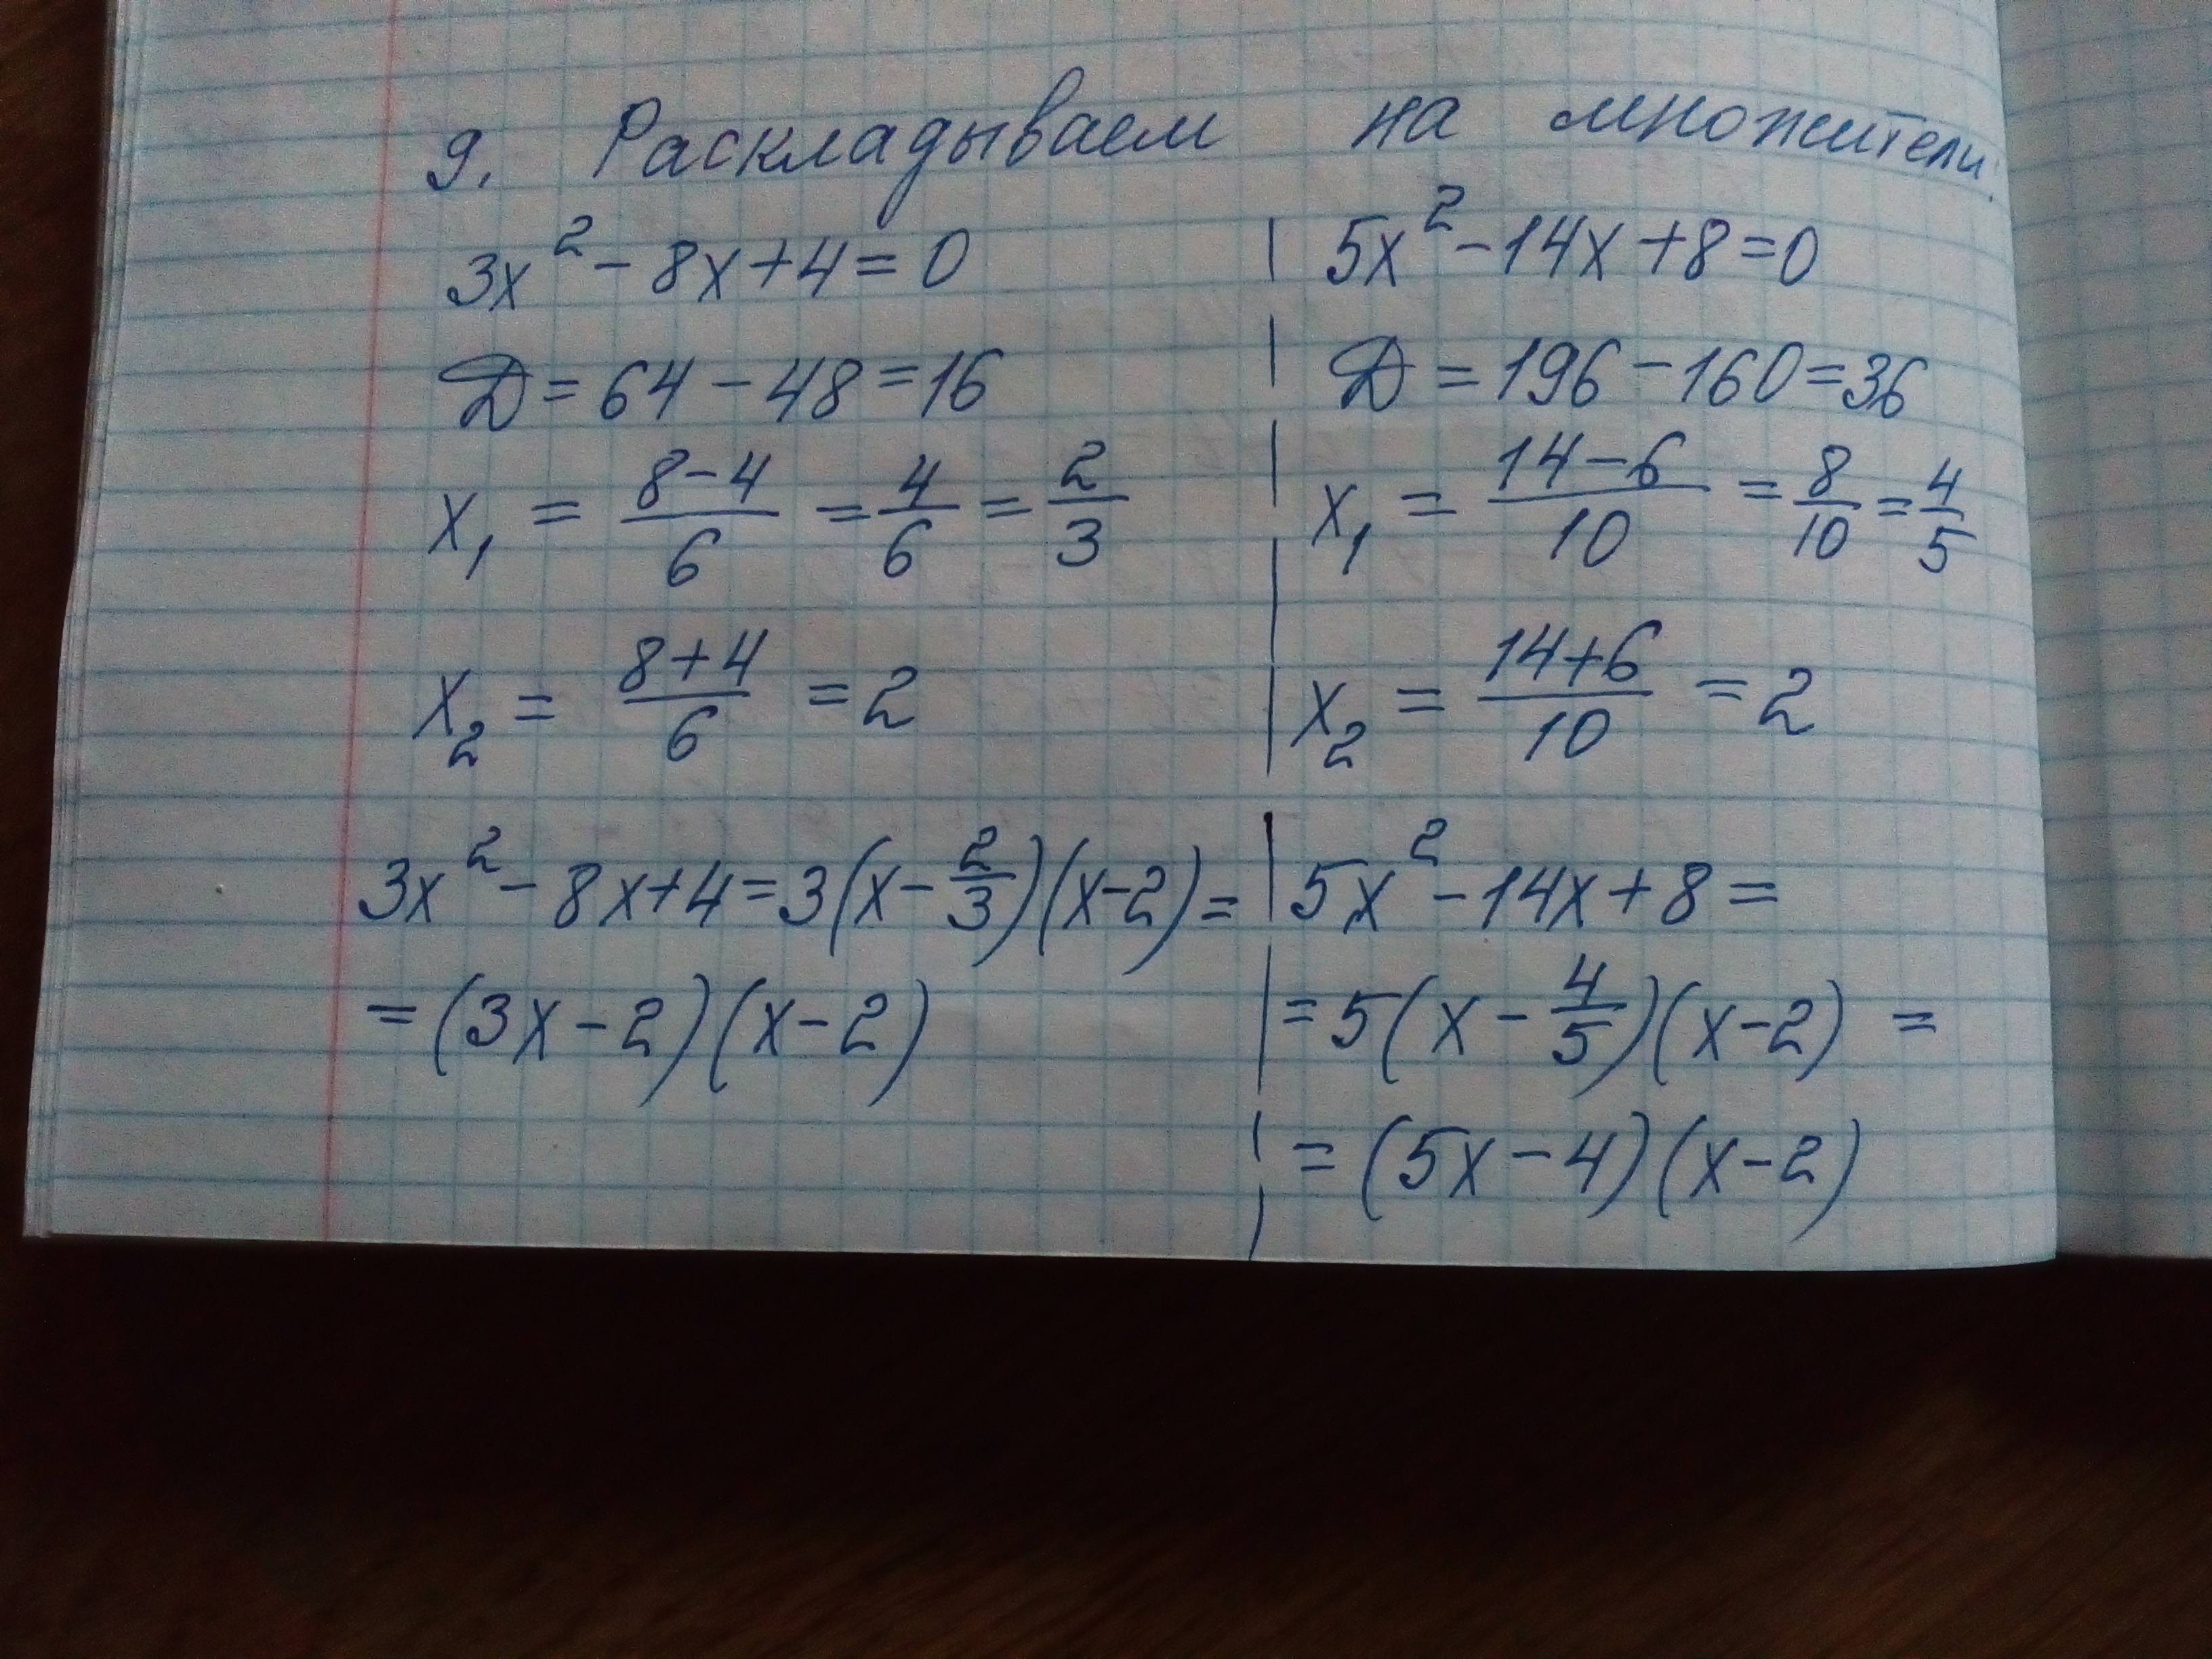 9. Раскладываем на множители:
3x² - 8x + 4 = 0
Д = 64 - 48 = 16
x₁ = (8-4)/6 = 4/6 = 2/3
x₂ = (8+4)/6 = 2
3x² - 8x + 4 = 3(x - 2/3)(x-2) =
= (3x - 2)(x - 2)
5x² - 14x + 8 = 0
Д = 196 - 160 = 36
x₁ = (14-6)/10 = 8/10 = 4/5
x₂ = (14+6)/10 = 2
5x² - 14x + 8 =
= 5(x - 4/5)(x-2) =
= (5x - 4)(x-2)